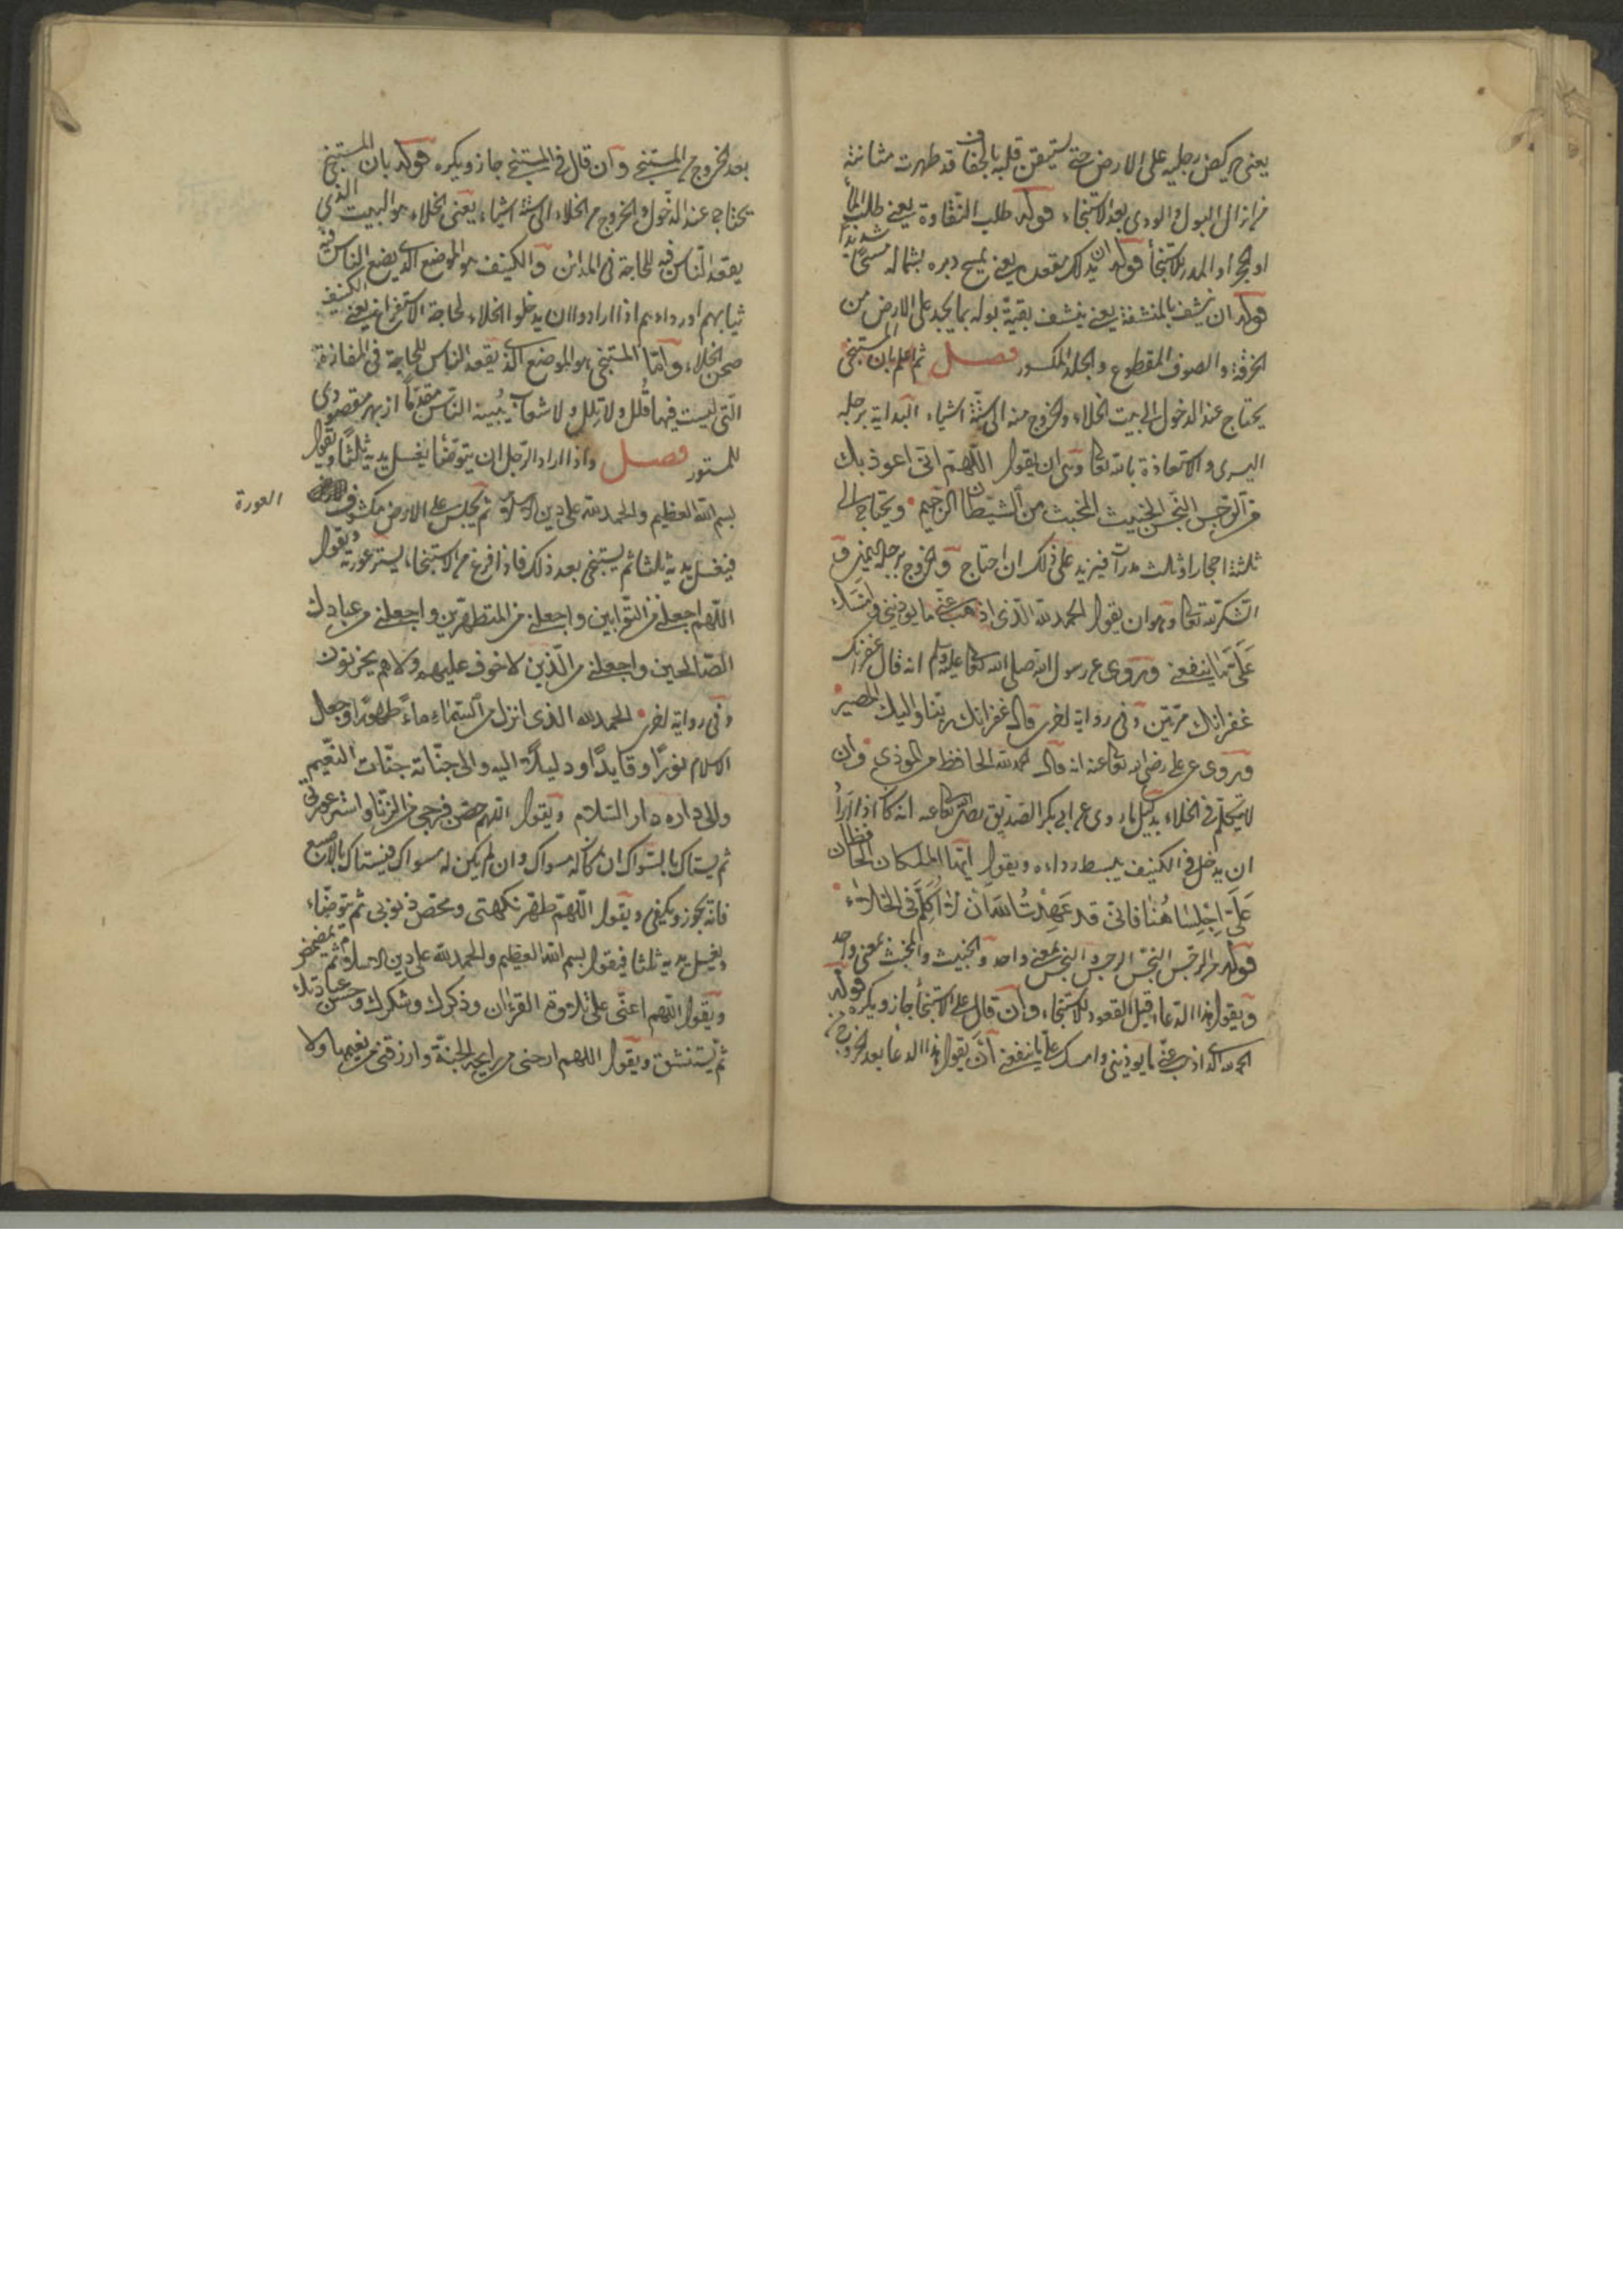 يعنى يركض رجليه على الارض حتى يستيقن قلبه بالجفاف قد طهرت مثانته
من ازال البول والودى بعد الاستنجاء قوله طلب النقاوة يعنى طلب الماء
او الحجر او المدر للاستنجاء قوله ان يدلك مقعده يعنى يمسح دبره بشماله مسحا شديدا
قوله ان ينشف بالمنشفة يعنى ينشف بقية بوله بما يجد على الارض من
الخرقة والصوف المقطوع والجلد المكسور فصل ثم اعلم بان المستنجى
يحتاج عند الدخول الى بيت الخلاء والخروج منه الى ستة اشياء البداية برجله
اليسرى والاستعاذة بالله تعالى وهى ان يقول اللهم انى اعوذ بك
من الرجس النجس الخبيث المخبث من الشيطان الرجيم ويحتاج الى
ثلثة احجار او ثلث مدرات فيزيد على ذلك ان احتاج والخروج برجله اليمنى و
الشكر لله تعالى وهو ان يقول الحمد لله الذى اذهب عنى ما يوذينى وامسك
على ما ينفعنى وروى عن رسول الله صلى الله تعالى عليه وسلم انه قال غفرانك
غفرانك مرتين وفى رواية اخرى قال غفرانك ربنا واليك المصير
وروى عن على رضى الله تعالى عنه انه قال الحمد لله الحافظ من الموذى وان
لا يتكلم فى الخلاء بدليل ما روى عن ابى بكر الصديق رضى الله تعالى عنه انه كان اذا اراد
ان يدخل فى الكنيف يبسط رداءه ويقول ايها الملكان الحافظان
على اجلسا هنا فانى قد عهدت الله ان لا اكلم فى الخلاء
قوله من الرجس النجس الرجس والنجس بمعنى واحد والخبيث والمخبث بمعنى واحد
ويقول هذا الدعاء قبل القعود للاستنجاء وان قال على الاستنجاء جاز ويكره قوله
الحمد لله الذى اذهب عنى ما يوذينى وامسك على ما ينفعنى ان يقول هذا الدعا بعد الخروج من
بعد الخروج من المستنجى وان قال فى المستنجى جاز ويكره قوله بان المستنجى
يحتاج عند الدخول والخروج من الخلاء الى ستة اشياء يعنى الخلاء هو البيت الذى
يقعد الناس فيه للحاجة فى المدائن والكنيف هو الموضع الذى يضع الناس فيه
ثيابهم او رداءهم اذا ارادوا ان يدخلوا الخلاء لحاجة الاستفراغ يعنى الكنيف
صحن الخلاء واما المستنجى هو الموضع الذى يقعد الناس للحاجة فى المفازة
التى ليست فيها قلل ولا تلل ولا شعاب
للمستور فصل واذا اراد الرجل ان يتوضا يغسل يديه ثلثا ويقول
بسم الله العظيم والحمد لله على دين الاسلام ثم يجلس على الارض مكشوف
العورة
فيغسل يديه ثلثا ثم يستنجى بعد ذلك فاذا فرغ من الاستنجاء يستر عورته ويقول
اللهم اجعلنى من التوابين واجعلنى من المتطهرين واجعلنى من عبادك
الصالحين واجعلنى من الذين لا خوف عليهم ولا هم يحزنون
وفى رواية اخرى الحمد لله الذى انزل من السماء ماء طهورا وجعل
الاسلام نورا وقايدا ودليلا اليه والى جناته جنات النعيم
والى داره دار السلام ويقول اللهم حصن فرجى من الزنا واستر عورتى
ثم يستاك بالسواك ان كان له مسواك وان لم يكن له مسواك فيستاك بالاصبع
فانه يجوز ويكفى ويقول اللهم طهر نكهتى ومحص ذنوبى ثم يتوضاء
ويغسل يديه ثلثا فيقول بسم الله العظيم والحمد لله على دين الاسلام ثم يمضمض
ويقول اللهم اعنى على تلاوة القرءان وذكرك وشكرك وحسن عبادتك
ثم يستنشق ويقول اللهم ارحنى من رايحة الجنة وارزقنى من نعيمها ولا